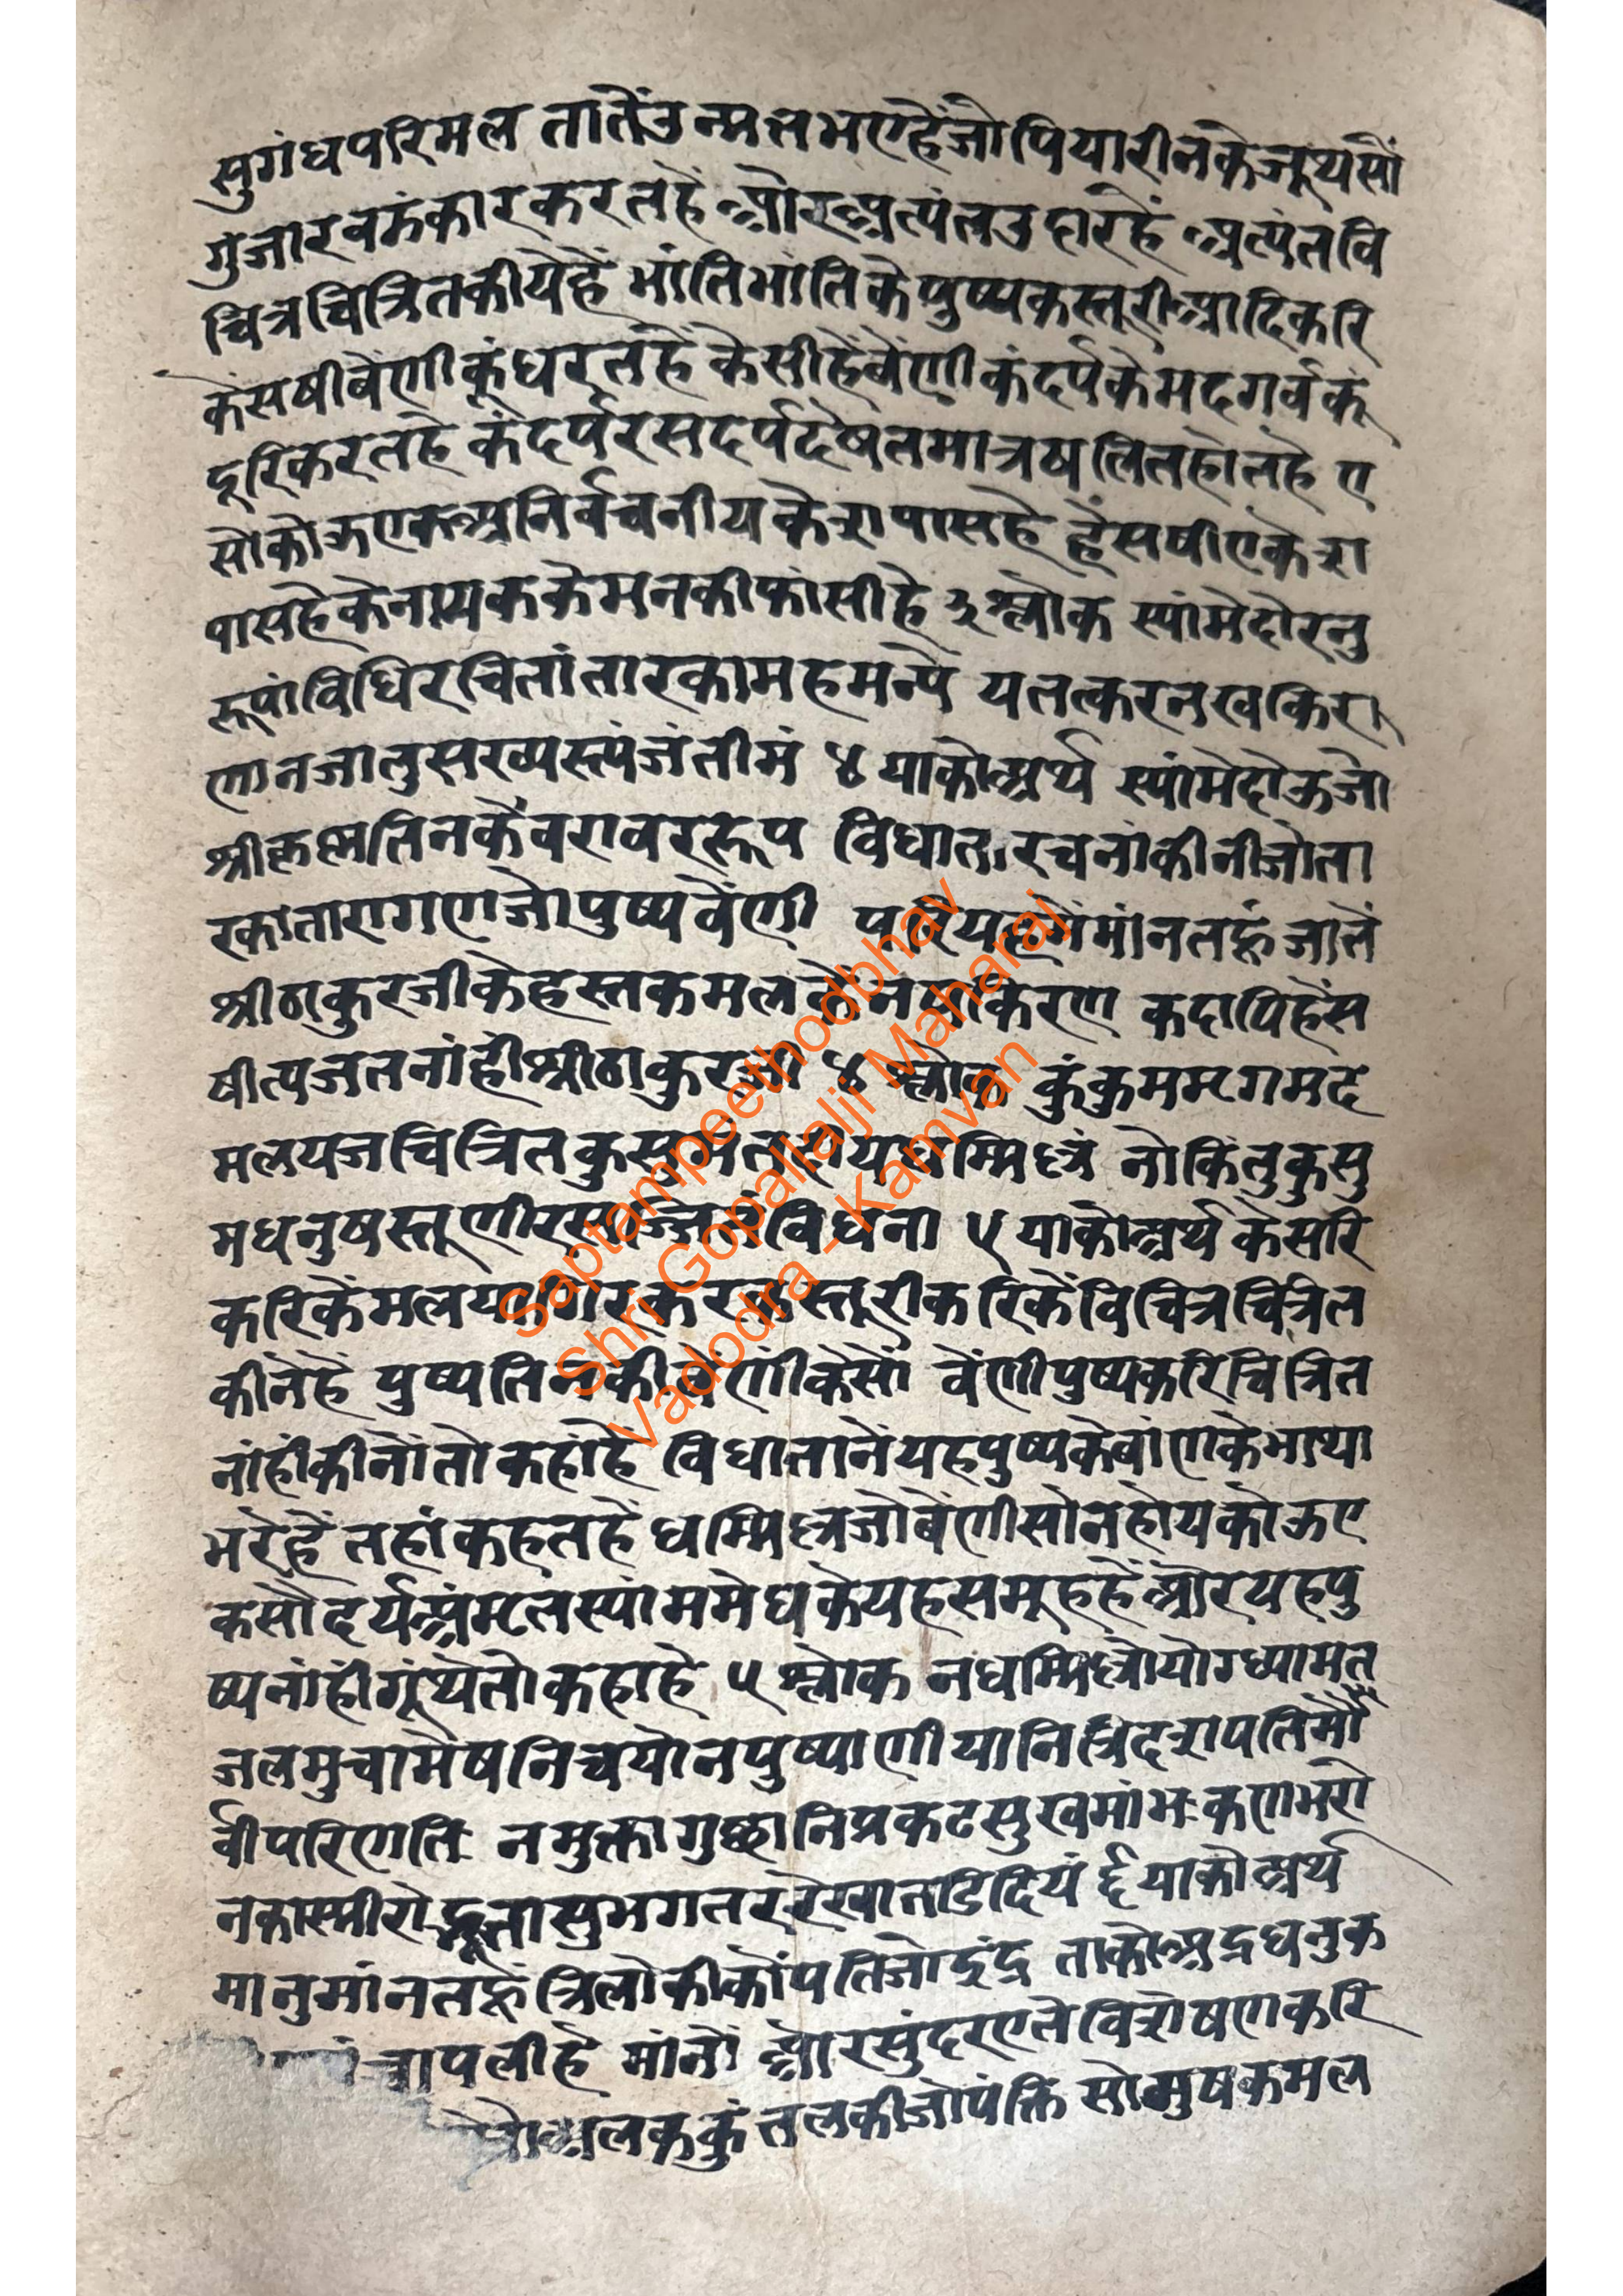 सुगंधपरिमल तातेंउन्मत्तभएहेंजोपियारीनकेजूथसौं
गुंजारवझंकारकरतहें औरअत्यंतउदारहें अत्यंतवि
चित्रचित्रितकीयेहें भांतिभांतिकेपुष्पकस्तूरीआदिकरि
केंसषीवेंणीकूंधरतहें कैसीहेंवेंणी कंदर्पकेमदगर्वकूं
दूरिकरतहे कंदर्परसदर्पदेंषतमात्रषलितहोतहै ए
सौकोऊएकअनिर्वचनीयकेशपासहै हेंसषीएकेश
पासहैकेनायककेमनकीफांसीहै ३ श्लोक स्यांमेदोरनु
रूपांविधिरचितांतारकामहमन्ये यतत्करनखकिर
णानजातुसख्यस्त्यंजंतीमं ४ याकोअर्थ स्यांमेदोऊजो
श्रीकृष्णतिनकैवरावररूप विधातारचनांकीनीजोता
रकातारागणजोपुष्पवेंणी मांनतहूं जातें
श्रीठाकुरजीकेहस्तकमल किरण कदापिहेंस
षीत्यजतनांहीश्रीठाकुरजी ४ श्लोक कुंकुममृगमद
मलयजचित्रित धम्मिल्लं नोकिंतुकुसु
मधनुषस्तूणीर विधना ५ याकोअर्थ केसरि
करिकेंमलयागिरकरकस्तूरीकरिकेंविचित्रचित्रित
कीनेहें पुष्पतिनकीवेंणीकेसों वेंणीपुष्पकरिचित्रित
नांहींकीनोंतोकहांहें विधातानेंयहपुष्पकेवांणकेभाथा
भरेहें तहांकहतहें धम्मिल्लजोवेंणीसोनहोयकोऊए
कसौंदर्यअंमृतस्यांममेघकेयहसमूहहें औरयहपु
ष्पनांहींगूंथेतोकहाहे ५ श्लोक नधम्मिल्लोयोग्ध्यामृत
जलमुचामेषनिचयोनपुष्पाणीयानित्रिदशपतिर्मौ
र्वीपरिणति नमुक्तागुछानिप्रकटसुखमांभःकणभरो
नकास्मीरोद्भूतासुभगतररेखातडिदियं ६ याकोअर्थ
मानुमांनतहूं त्रिलोकीकोंपतिजोइंद्र ताकोअद्रधनुक
चापलीहै मांनों औरसुंदरएतेविशेषणकरि
अलककुंतलकीजोपंक्ति सोमुषकमल
Saptampeethodbhav
Shri Gopallalji Maharaj
Vadodra - Kamvan